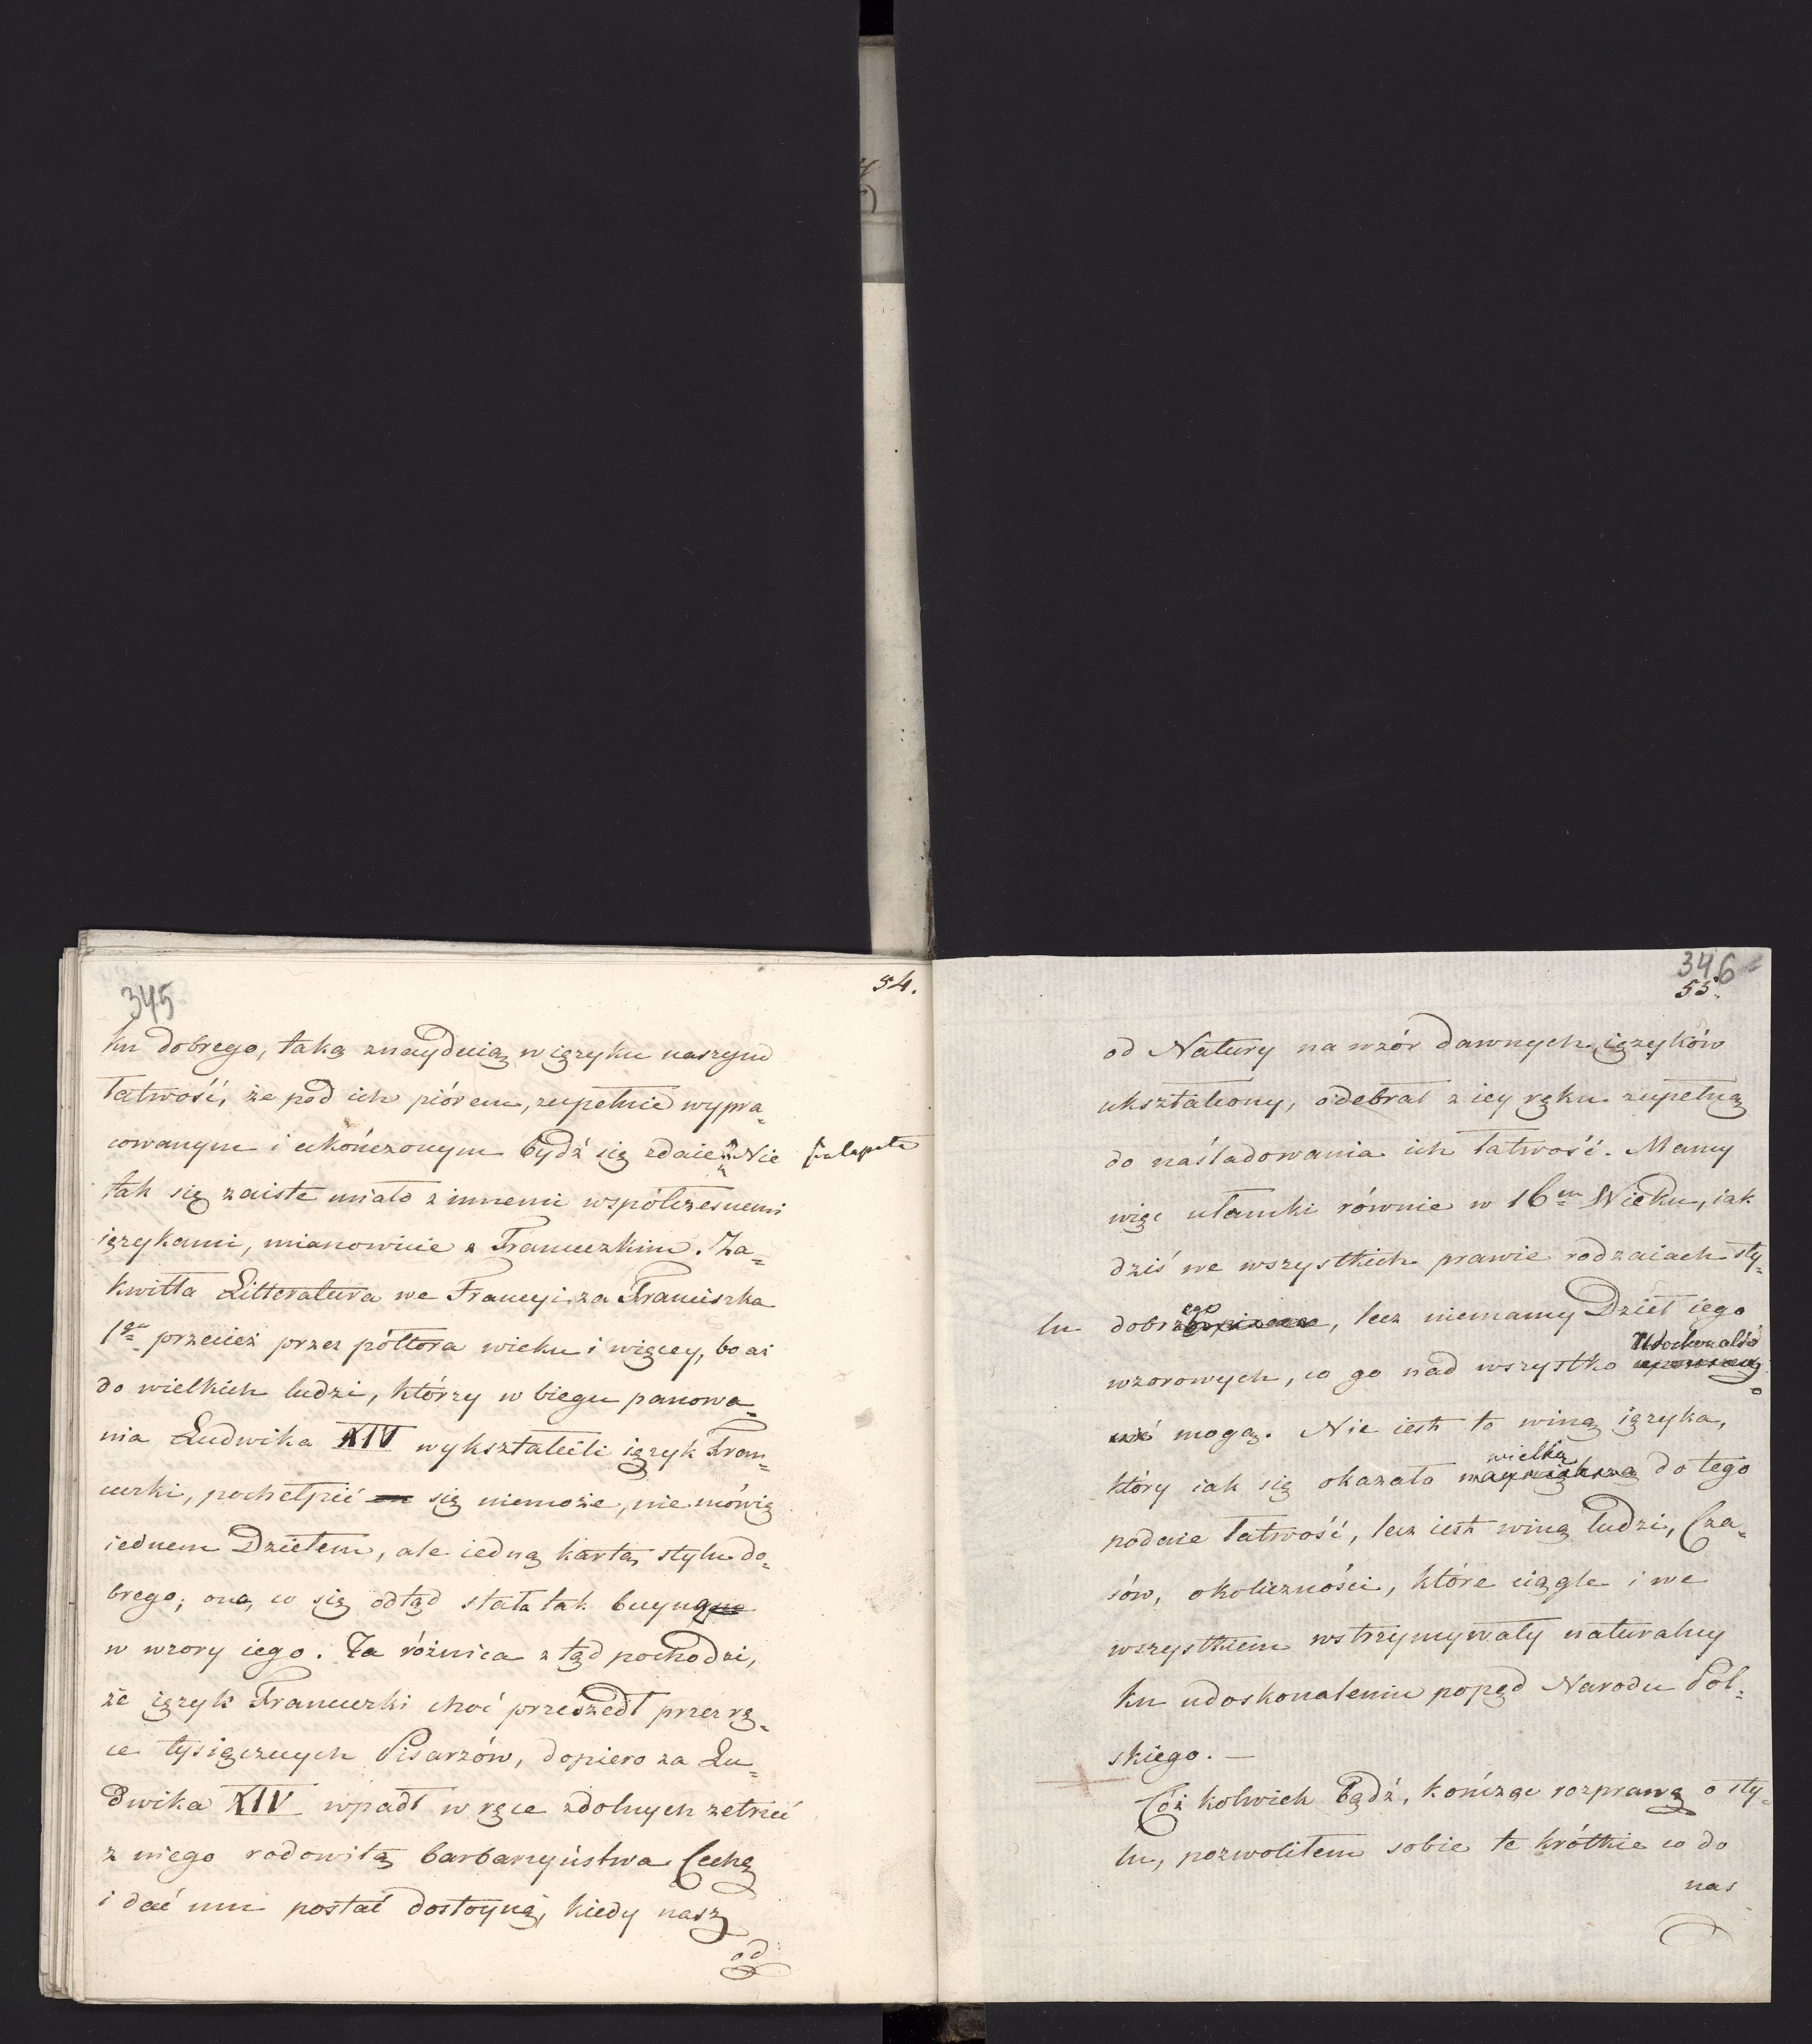 345
54.
ku dobrego, taką znayduią w ięzyku naszym
łatwość, że pod ich piórem, zupełnie wypra=
cowanym i ukończonym bydź się zdaie. Nie
tak się zaiste miało z innemi współczesnemi
ięzykami, mianowicie z Francuzkim. Za=
kwitła Litteratura we Francyi za Franciszka
1go przecież przez półtora wieku i więcey, bo aż
do wielkich ludzi, którzy w biegu panowa=
nia Ludwika XIV wykształcili ięzyk Fran=
cuzki, pochełpić się niemoże, nie mówię
iednem Dziełem, ale iedną kartą stylu do=
brego; ona, co się odtąd stała tak buyną
w wzory iego. Ta różnica ztąd pochodzi,
że ięzyk Francuzki choć przeszedł przez rę=
ce tysiącznych Pisarzów, dopiero za Lu=
dwika XIV wpadł w ręce zdolnych zetrzeć
z niego rodowitą barbarzyństwa Cechę
i dać mu postać dostoyną, kiedy nasz
od
346
55.
od Natury na wzór dawnych ięzyków
ukształcony, odebrał z iey ręku zupełną
do naśladowania ich łatwość. Mamy
więc ułamki równie w 16m Wieku, iak
dziś we wszystkich prawie rodzaiach sty=
lu dobrego, lecz niemamy Dzieł iego
wzorowych, co go nad wszystko udoskonalić
mogą. Nie iest to winą ięzyka,
który iak się okazało wielką do tego
podaie łatwość, lecz iest winą ludzi, Cza=
sów, okoliczności, które ciągle i we
wszystkiem wstrzymywały naturalny
ku udoskonaleniu popęd Narodu Pol=
skiego. —
Cóż kolwiek bądź, kończąc rozprawę o sty=
lu, pozwoliłem sobie te krótkie co do
nas